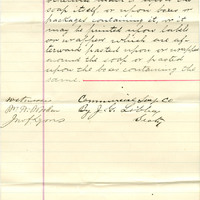 soap itself, or upon boxes or
packages containing it, or it
may be printed upon labels
or wrappers which are af-
terward pasted upon or wrapped
around the soap or pasted
upon the boxes containing the
same.
Witnesses Commercial Soap Co
By J. G.
Secty